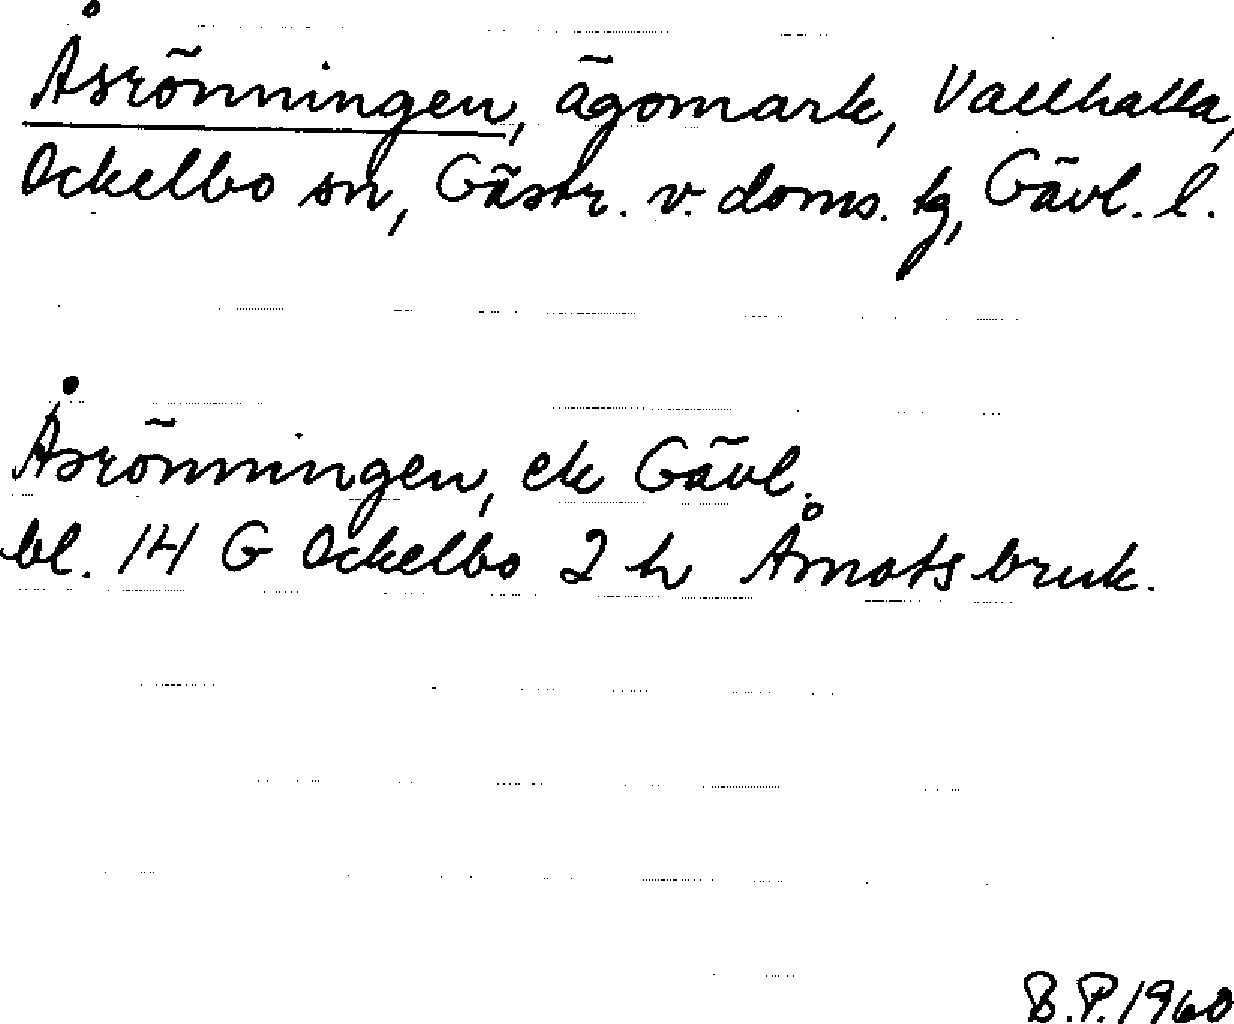 Åsrönningen, ägomark, Vallhalla,
Ockelbo sn, Gästr. v. doms. tg, Gävl. l.
Åsrönningen, ek Gävl.
bl. 14 G Ockelbo 2 h Åmotsbruk.
B.P. 1960